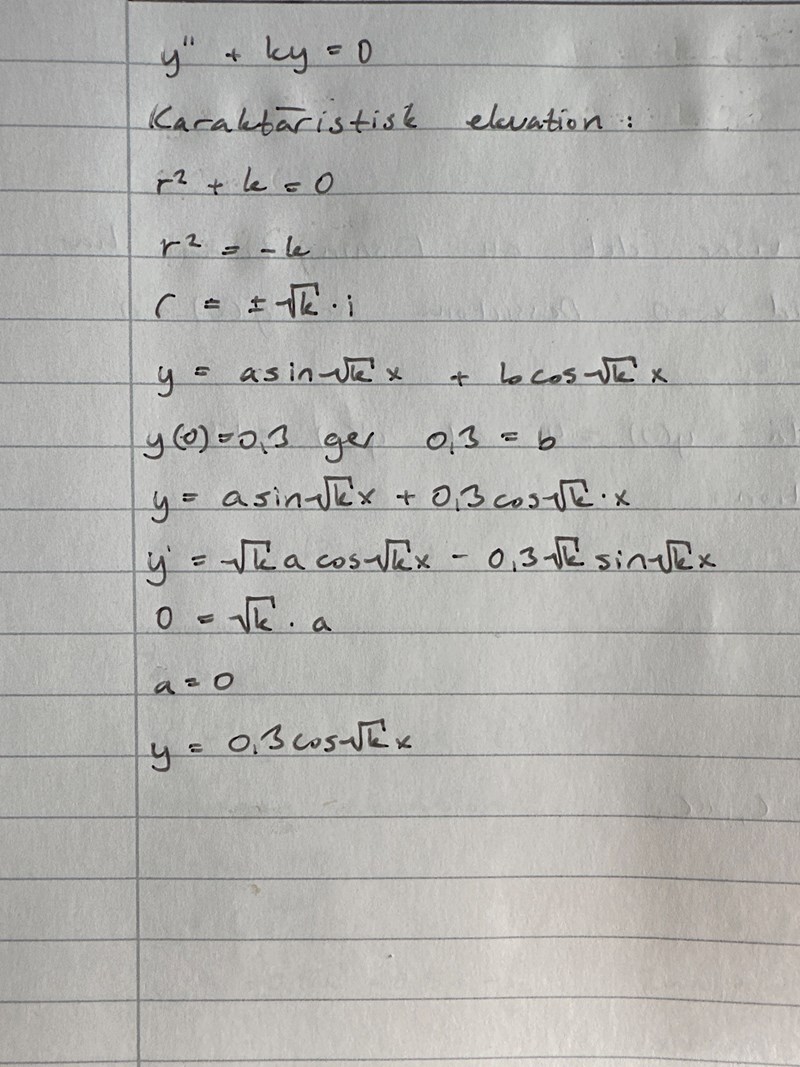 y'' + ky = 0
Karaktäristisk ekvation :
r² + k = 0
r² = -k
r = ±√k · i
y = a sin √k x + b cos √k x
y(0) = 0,3 ger 0,3 = b
y = a sin √k x + 0,3 cos √k · x
y' = √k a cos √k x - 0,3 √k sin √k x
0 = √k · a
a = 0
y = 0,3 cos √k x